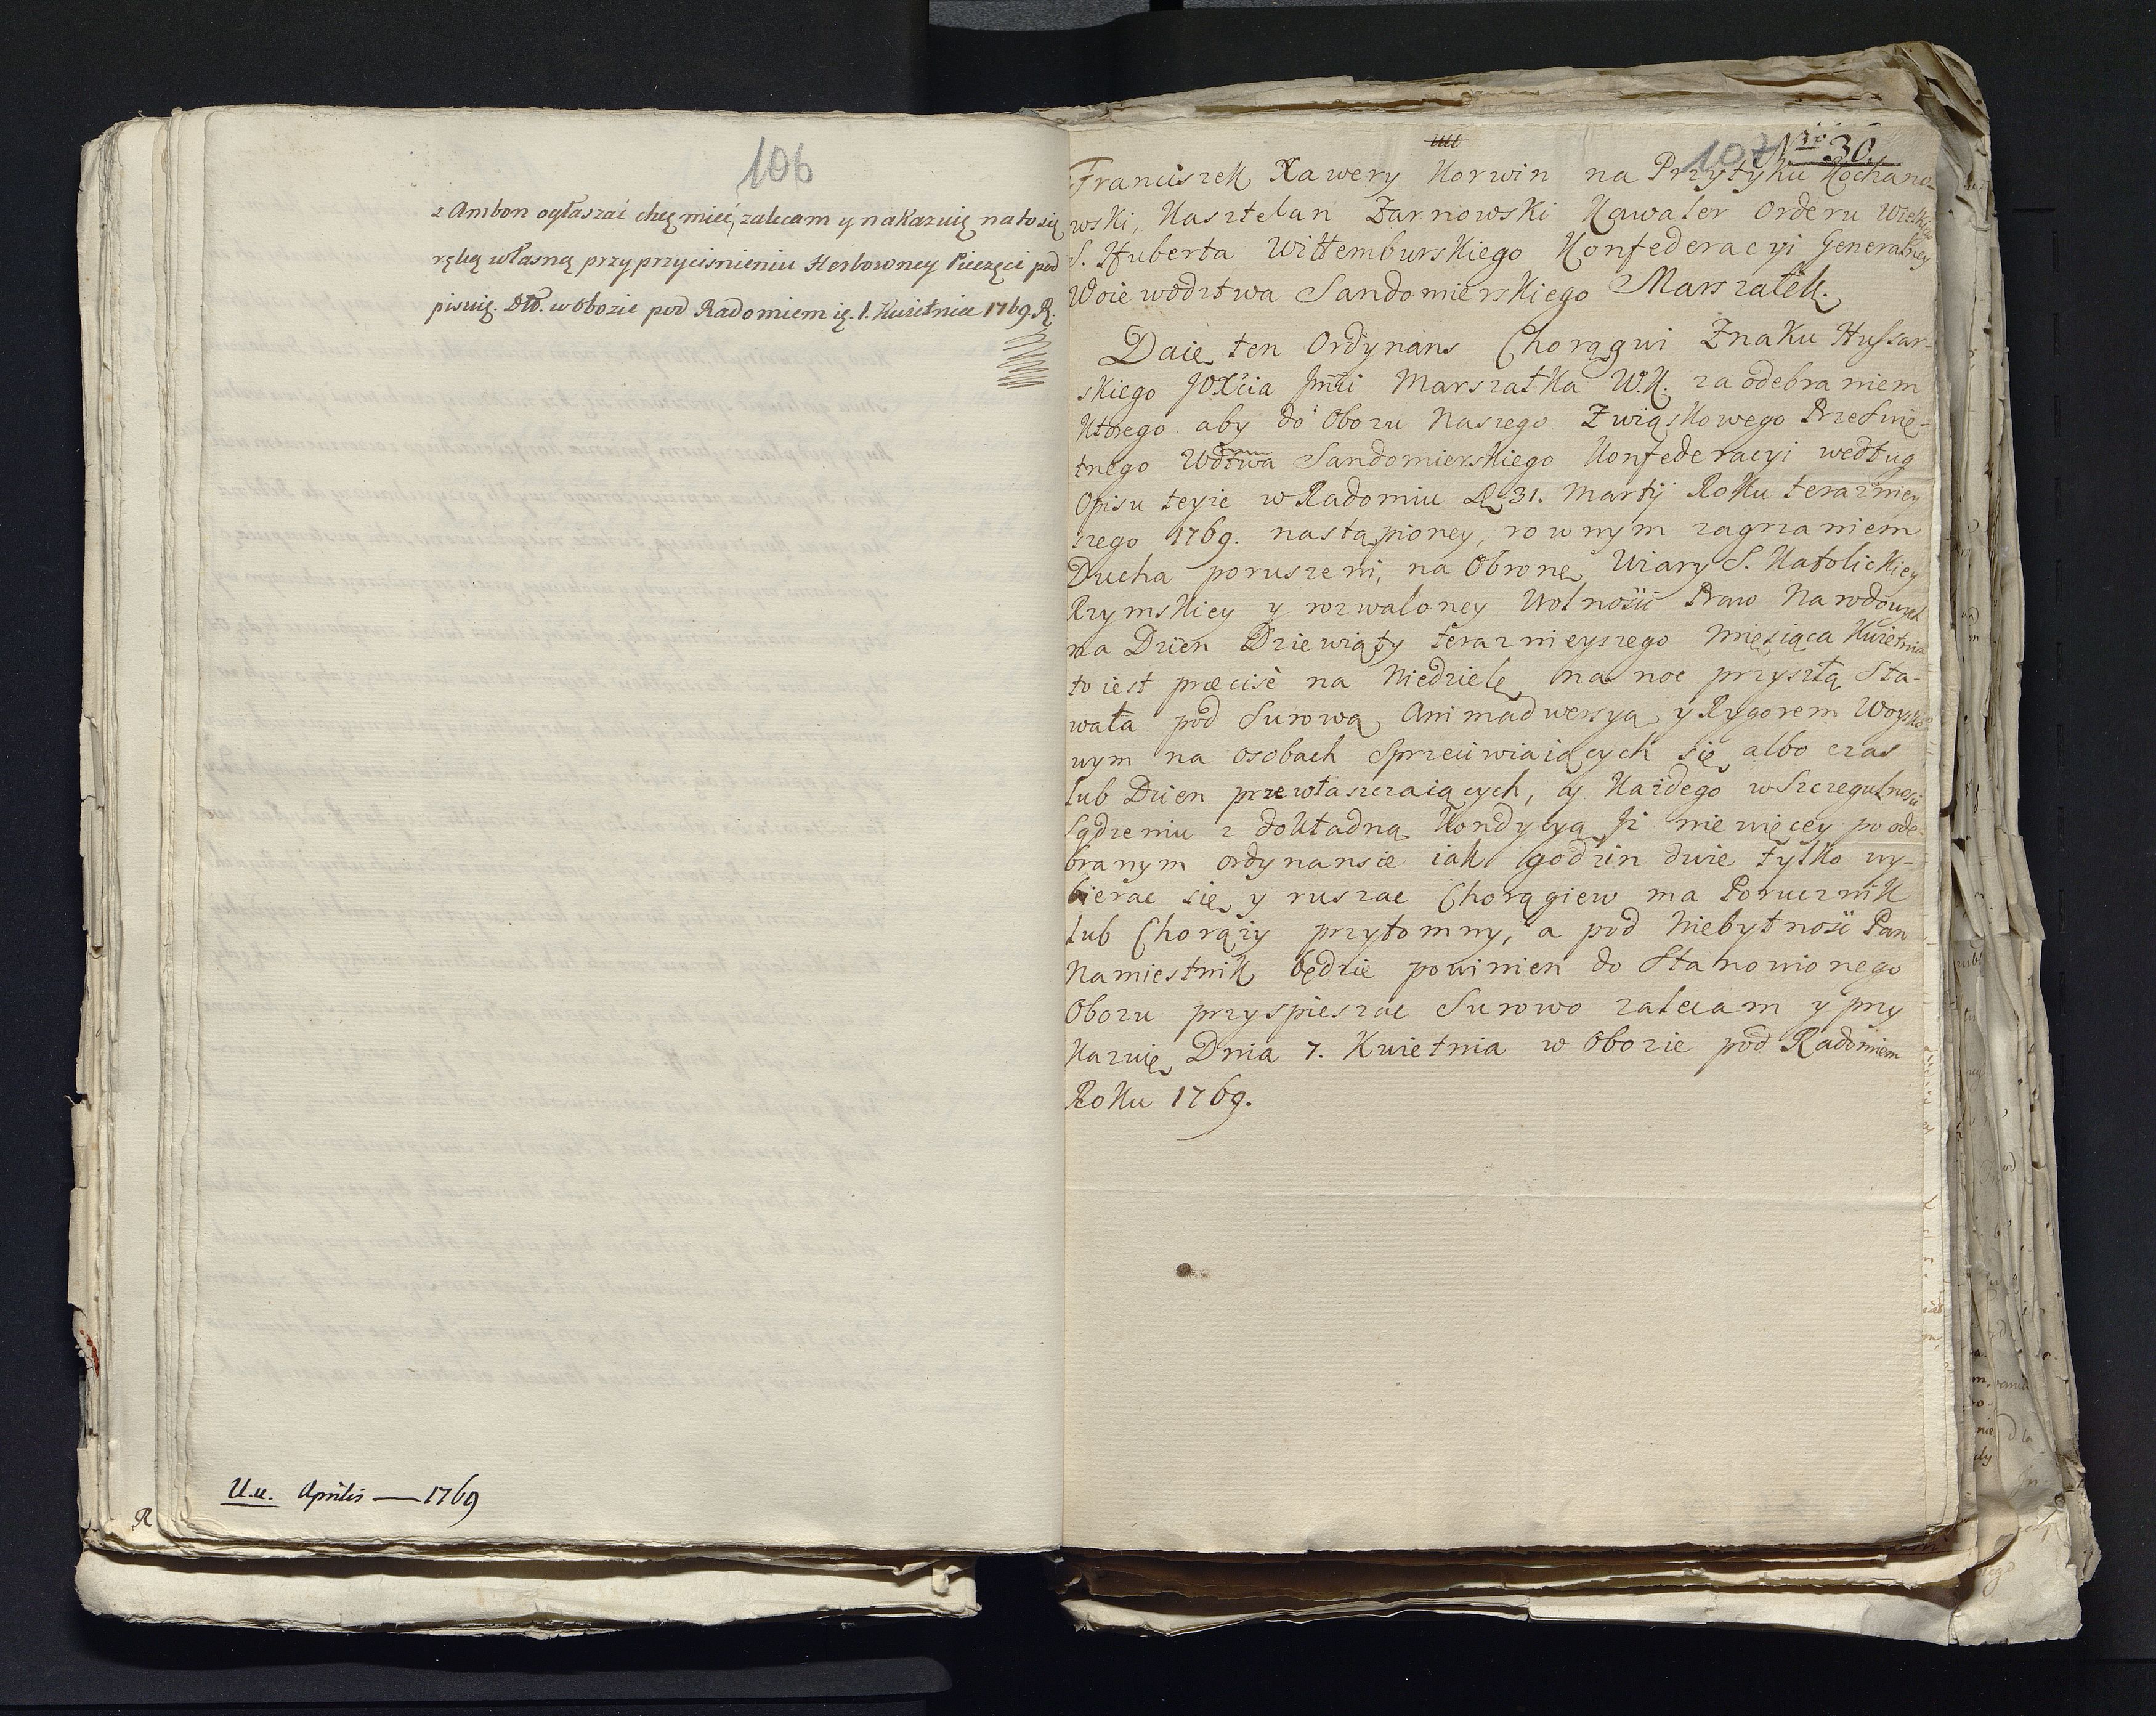 106
z Ambon ogłaszać chcę mieć, zalecam y nakazuię na to się
ręką własną przy przycisnieniu Herbowney Pieczęci pod
pisuię. Dtt. w Obozie pod Radomiem
1. Kwietnia 1769. R.
U.u. Aprilis — 1769
R
107 Nro 30.
Franciszek Xawery Korwin na Przytyku Kochano-
wski, Kasztelan Żarnowski Kawaler Orderu Wielkiego
S. Huberta Wittemburskiego Konfederacyi Generalney
Woiewodztwa Sandomierskiego Marszałek.
Daię ten Ordynans Chorągwi Znaku Hussar-
skiego JOXcia Jmci Marszałka W.K. za odebraniem
Ktorego aby do Obozu Naszego Związkowego Prześwię-
tnego Wdztwa Sandomierskiego Konfederacyi według
Opisu teyże w Radomiu D. 31. Martij Roku teraźniey
szego 1769. nastąpioney, rownym zagrzaniem
Ducha poruszeni, na Obronę Wiary S. Katolickiey
Rzymskiey y rozwaloney Wolności Praw Narodowych
na Dzień Dziewiąty teraznieyszego Miesiąca Kwietnia
to iest præcisè na Niedzielę na noc przyszłą Sta-
wała pod Surową Animadwersyą y Rygorem Woysko
wym na osobach Sprzeciwiaiących się albo czas
lub Dzien przewłaszczaiących, a Każdego w Szczegulności
Sądzeniu z dokładną Kondycyą Jż nie więcey po ode-
branym ordynansie iak godzin dwie tylko wy-
bierac się y ruszac Chorągiew ma Porucznik
lub Chorąży przytomny, a pod Niebytność Pan
Namiestnik będzie powinien do Stanowionego
Obozu przyspieszac Surowo zalecam y przy
Kazuię Dnia 7. Kwietnia w Obozie pod Radomiem
Roku 1769.